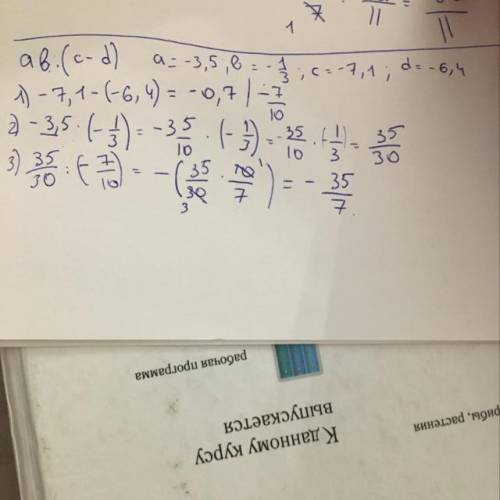 7 · = 
1 11 11
ab:(c-d) a = -3,5, b = -1/3; c = -7,1; d = -6,4
1) -7,1-(-6,4) = -0,7 | -7/10
2) -3,5 · (-1/3) = -35/10 · (-1/3) = -35/10 · (-1/3) = 35/30
3) 35/30 : (-7/10) = -(35/30 · 10/7) = - 35/7
3 1
рабочая программа
К данному курсу
выпускается
растения